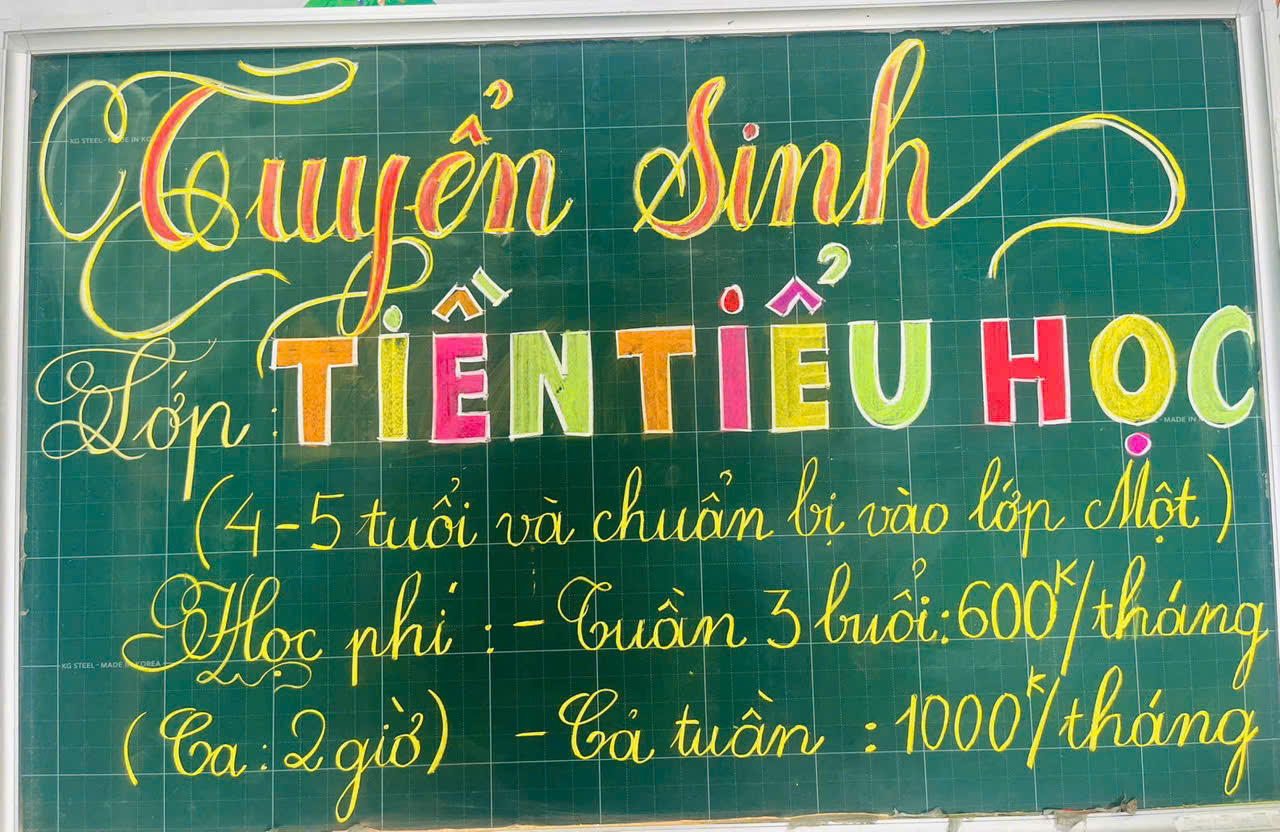 Tuyển Sinh
Lớp: TIỀN TIỂU HỌC
(4-5 tuổi và chuẩn bị vào lớp Một)
Học phí: - Tuần 3 buổi: 600K/tháng
(Ca: 2 giờ) - Cả tuần: 1000K/tháng
KG STEEL - MADE IN KOREA